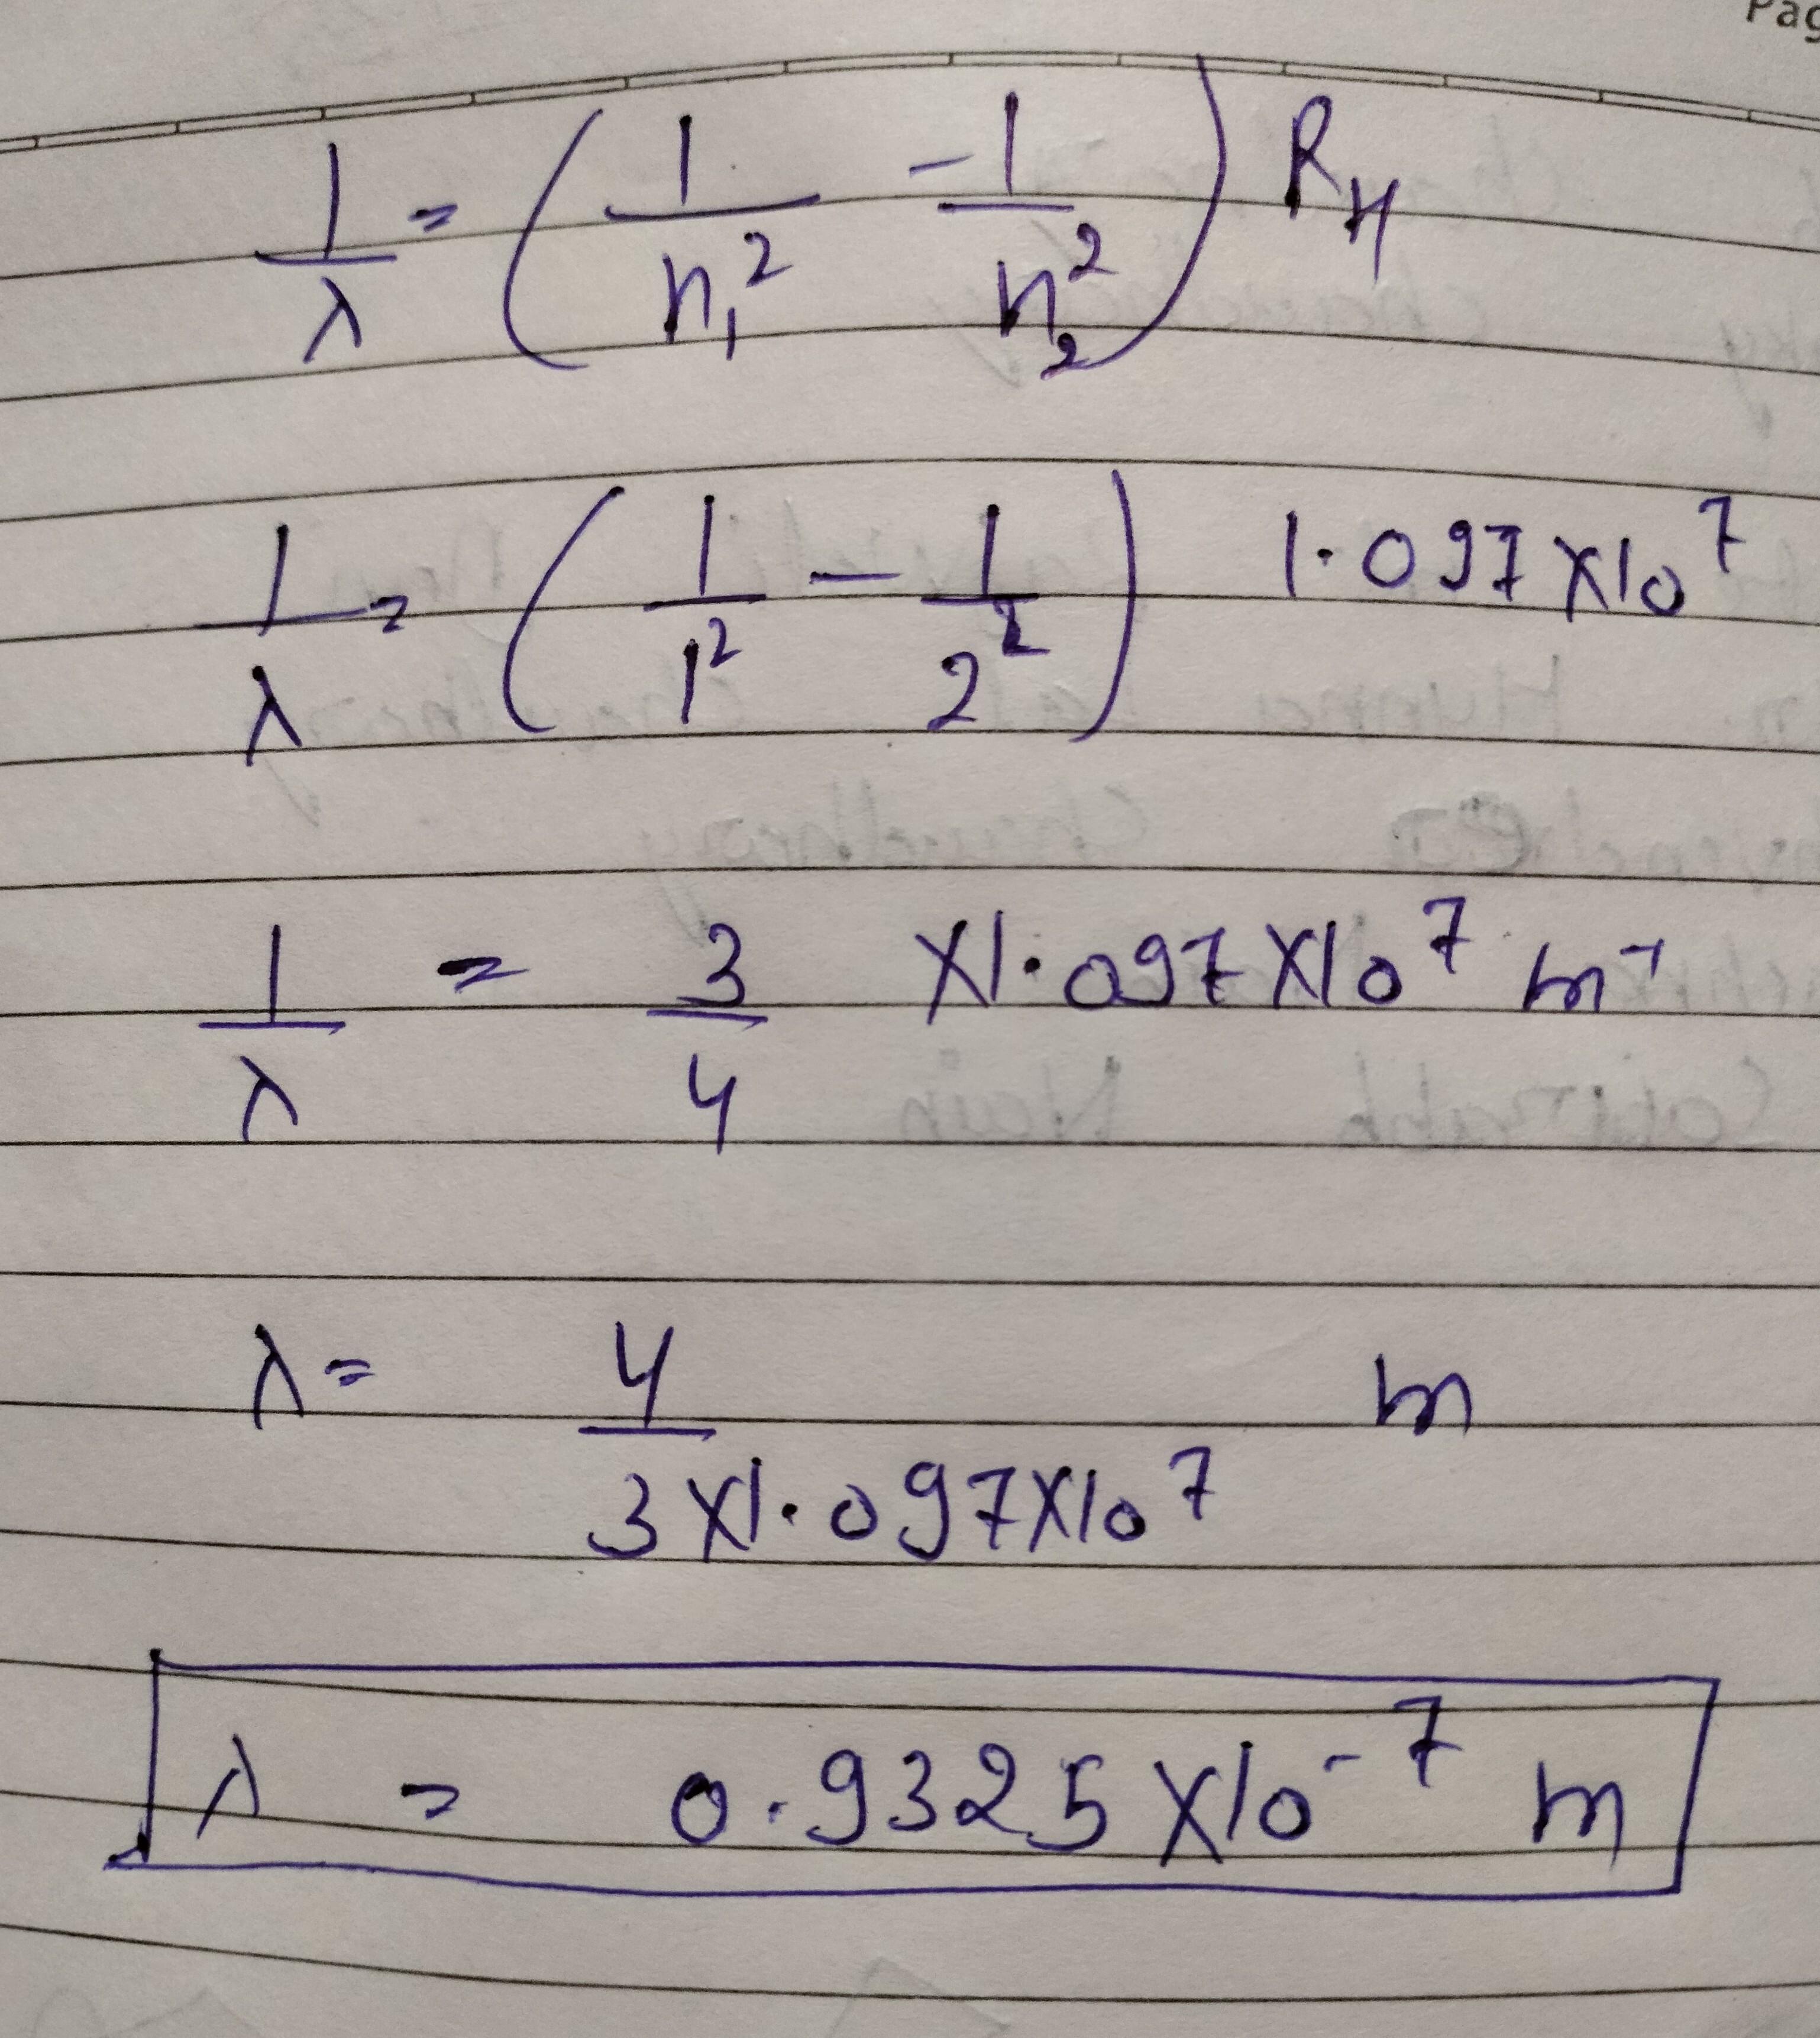 Pag
1/λ = (1/n₁² - 1/n₂²) R_H
1/λ = (1/1² - 1/2²) 1.097 x 10⁷
1/λ = 3/4 x 1.097 x 10⁷ m⁻¹
λ = 4/(3 x 1.097 x 10⁷) m
λ = 0.9325 x 10⁻⁷ m